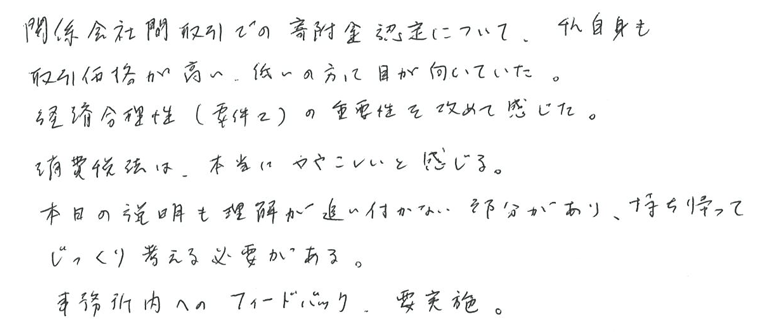 関係会社間取引での寄附金認定について、私自身も
取引価格が高い、低いの方に目が向いていた。
経済合理性（要件2）の重要性を改めて感じた。
消費税法は、本当にややこしいと感じる。
本日の説明も理解が追い付かない部分があり、持ち帰って
じっくり考える必要がある。
事務所内へのフィードバック、要実施。